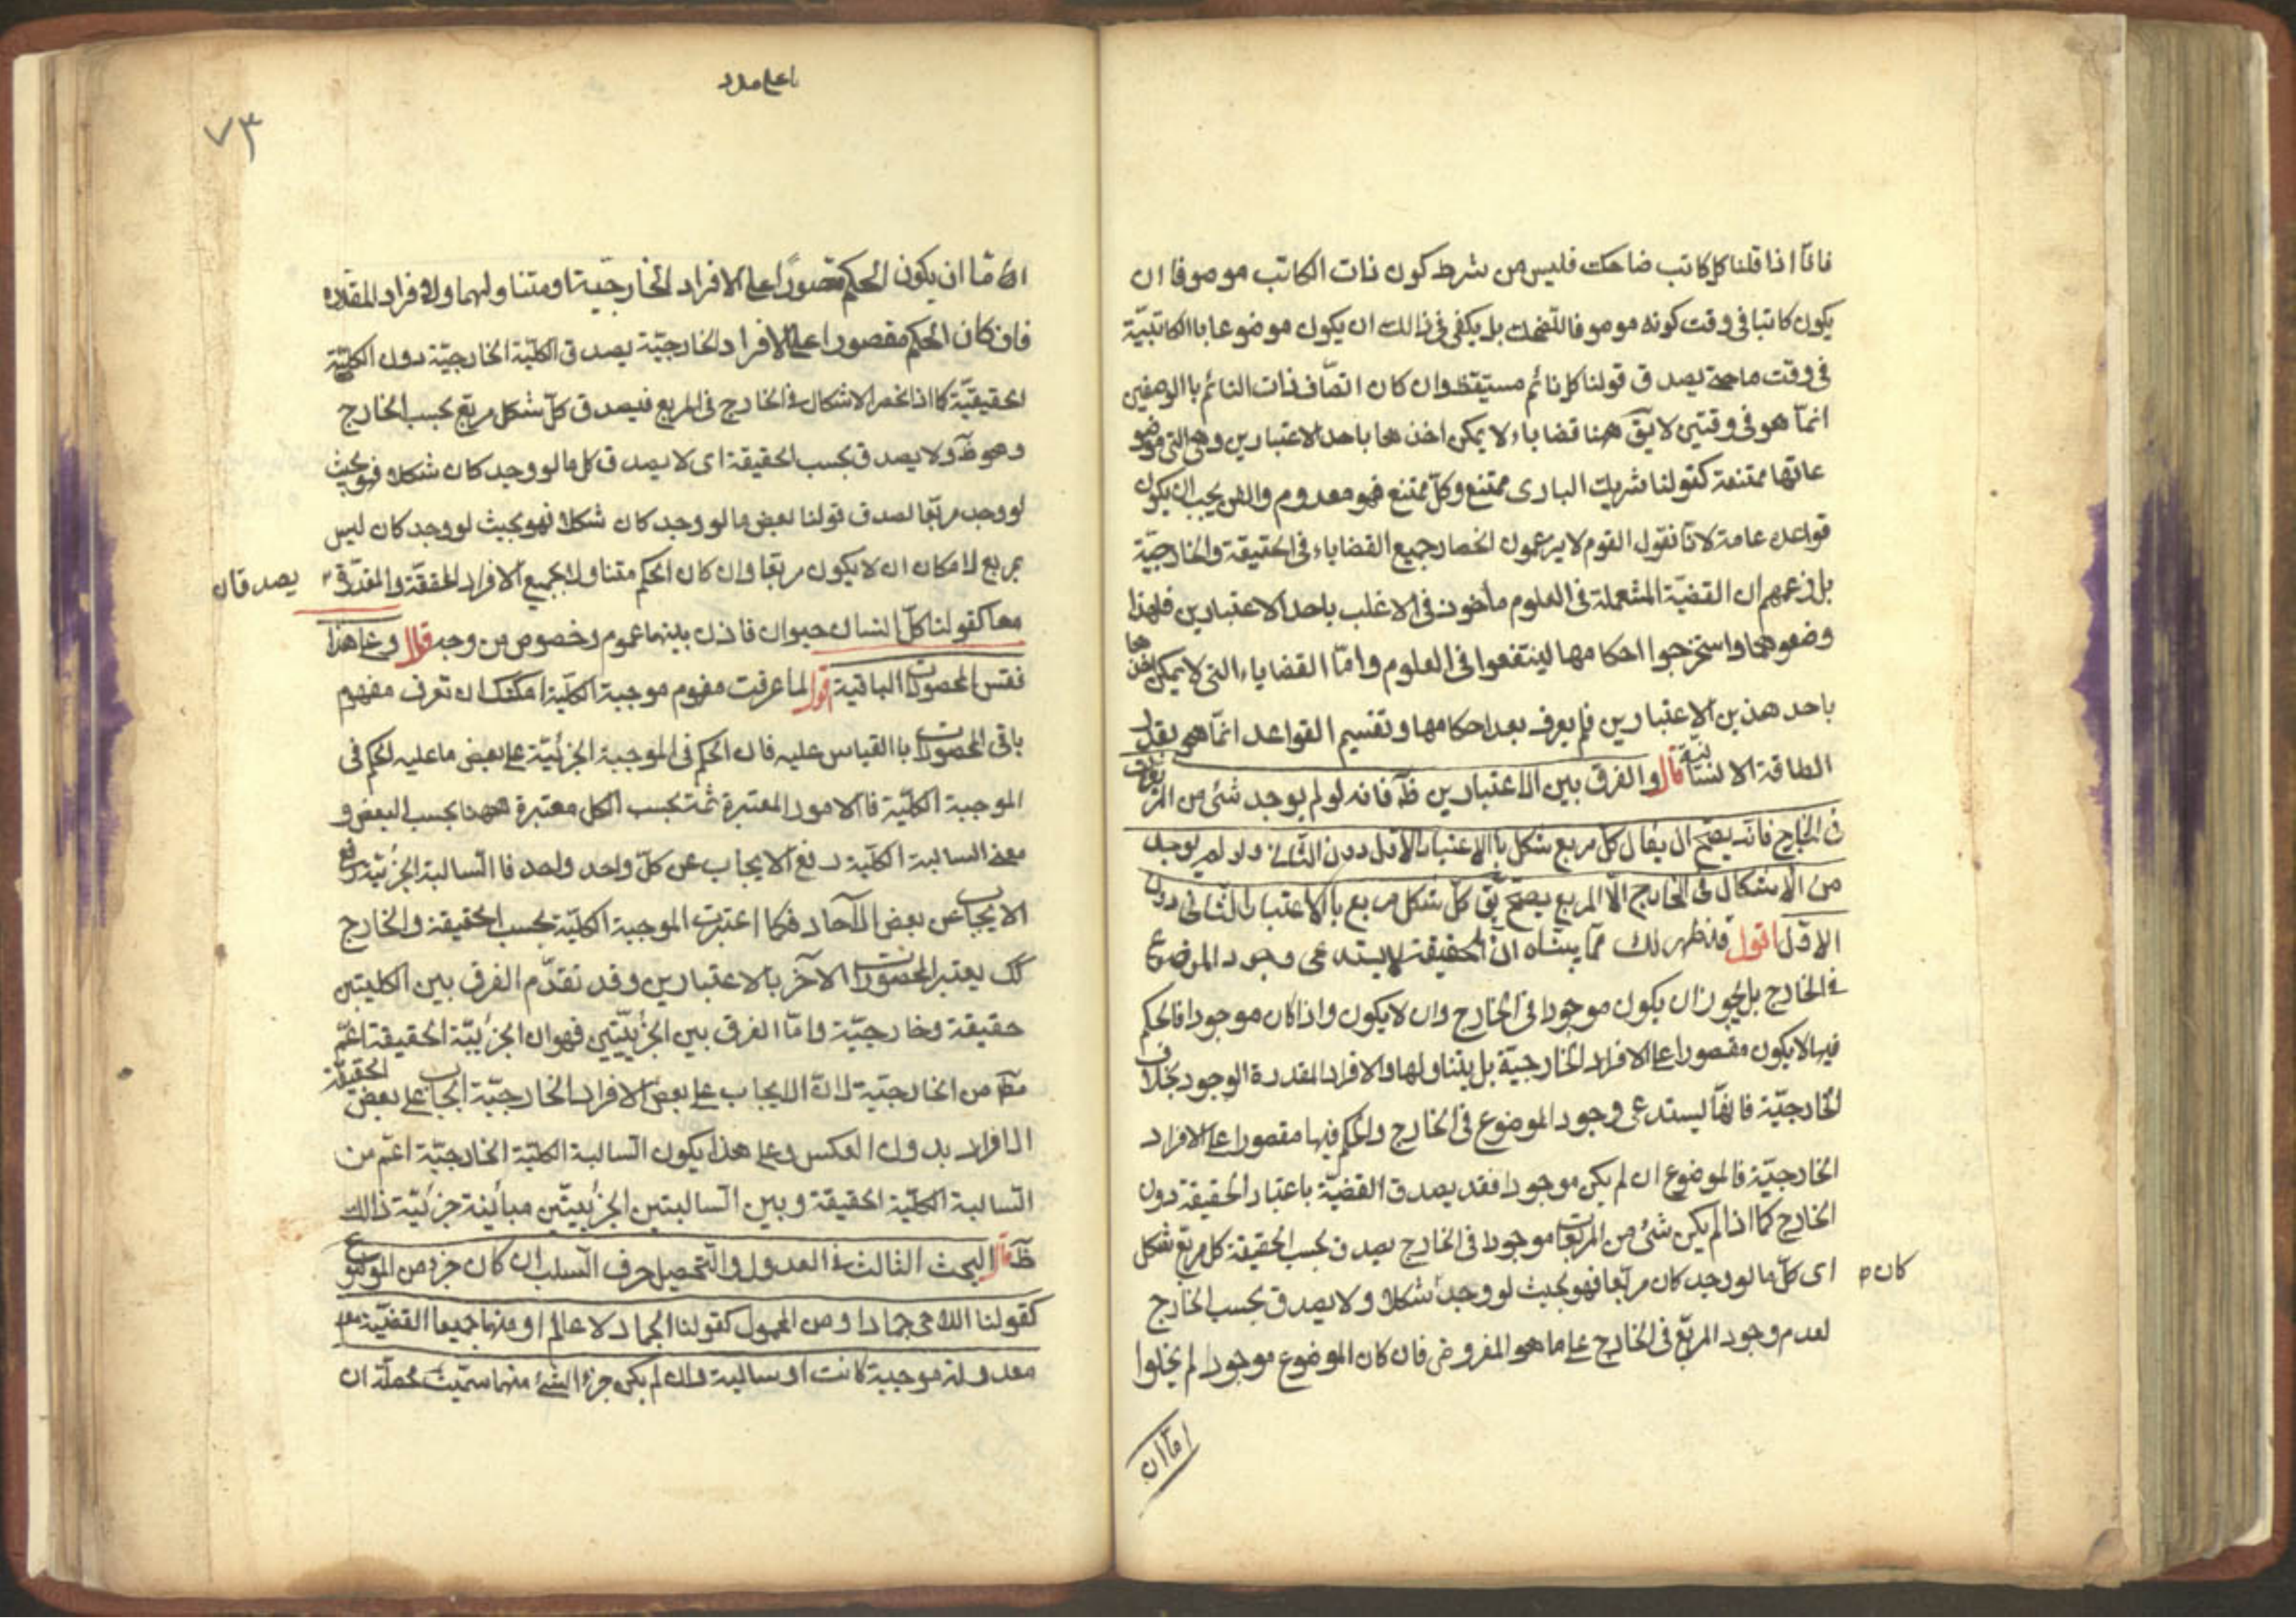 فانّا اذا قلنا كل كاتب ضاحك فليس من شرط كون ذات الكاتب موصوفا ان
يكون كاتبا فى وقت كونه موصوفا بالضحك بل يكفى فى ذالك ان يكون موضوعا باالكاتبيّة
فى وقت ما حتى يصدق قولنا كل نائم مستيقظ وان كان اتصّاف ذات النائم باالوصفين
انمّا هو فى وقتين لا يق ههنا قضاياء لا يمكن اخذها باحد الاعتبارين وهى التى موضو
عاتها ممتنعة كقولنا شريك البارى ممتنع وكلّ ممتنع فهو معدوم والفن يجب ان يكون
قواعده عامة لانّا نقول القوم لا يزعمون انحصار جميع القضاياء فى الحقيقة والخارجيّة
بل زعمهم ان القضيّة المستعملة فى العلوم مأخوذ فى الاغلب باحد الاعتبارين فلهذا
وضعوهما واستخرجوا احكامها لينتفعوا فى العلوم وامّا القضاياء التى لا يمكن اخذها
باحد هذين الاعتبارين فلم يعرف بعد احكامها وتقسيم القواعد انمّا هى بقدر
الطاقة الانسانيّة قال والفرق بين الاعتبارين ظ فانه لو لم يوجد شئ من المربعات
فى الخارج فانّه يصحّ ان يقال كل مربع شكل باالاعتبار الاوّل دون الثانى ولو لم يوجد
من الاشكال فى الخارج الّا المربع يصحّ يق كلّ شكل مربع باالاعتبار الثانى دون
الاوّل اقول قد ظهر لك ممّا بيناه انّ الحقيقة لا يستدعى وجود الموضوع
فى الخارج بل يجوز ان يكون موجودا فى الخارج وان لا يكون واذا كان موجودا فالحكم
فيها لا يكون مقصورا على الافراد الخارجيّة بل يتناولها والافراد المقدرة الوجود بخلاف
الخارجيّة فانهّا يستدعى وجود الموضوع فى الخارج والحكم فيها مقصورا على الافراد
الخارجيّة فالموضوع ان لم يكن موجودا فقد يصدق القضيّة باعتبار الحقيقة دون
الخارج كما اذا لم يكن شئ من المربّعات موجودا فى الخارج يصدق بحسب الحقيقة كل مربّع شكل
اى كلّ ما لو وجد كان مربّعا فهو بحيث لو وجد شكلا ولا يصدق بحسب الخارج
كان
لعدم وجود المربّع فى الخارج على ما هو المفروض فان كان الموضوع موجودا لم يخلوا
امّا ان
٧٣
امّا ان يكون الحكم مقصورًا على الافراد الخارجيّة او متناولهما ولافراد المقدره
فان كان الحكم مقصورا على الافراد الخارجيّة يصدق الكليّة الخارجيّة دون الكليّة
الحقيقيّة كما اذا انحصر الاشكال فى الخارج فى المربع فيصدق كلّ شكل مربّع بحسب الخارج
وهو ظ ولا يصدق بحسب الحقيقة اى لا يصدق كل ما لو وجد كان شكلا فهو بحيث
لو وجد مربّعا لصدق قولنا بعض ما لو وجد كان شكلا فهو بحيث لو وجد كان ليس
بمربع لامكان ان لا يكون مربّعا وان كان الحكم متناولا لجميع الافراد المحققّة والمقدّرة
يصدقان
معا كقولنا كلّ انسان حيوان فاذن بينهما عموم وخصوص من وجه قال وعلى هذا
فقس المحصورات الباقية اقول لما عرفت مفهوم موجبة الكليّة امكنك ان تعرف مفهوم
باقى المحصورات باالقياس عليه فان الحكم فى الموجبة الجزئيّة على بعض ما عليه الحكم فى
الموجبة الكليّة فاالامور المعتبرة ثمّة بحسب الكل معتبرة ههنا بحسب البعض و
معنى السالبة الكليّة رفع الايجاب عن كلّ واحد واحد فاالسّالبة الجزئيّة رفع
الايجاب عن بعض الآحاد فكما اعتبرت الموجبة الكليّة بحسب الحقيقة والخارج
كك يعتبر المحصورات الآخر بالاعتبارين وقد تقدّم الفرق بين الكليتين
حقيقة وخارجيّة وامّا الفرق بين الجزئيّتين فهو ان الجزئيّة الحقيقة اعّم
مط من الخارجيّة لانّ الايجاب على بعض الافراد الخارجيّة ايجاب على بعض الحقيقيّة
الافراد بدون العكس وعلى هذا يكون السّالبة الكليّة الخارجيّة اعّم من
السّالبة الكليّة الحقيقة وبين السّالبتين الجزئيتّين مبائنة جزئيّة ذالك
ظ قال البحث الثالث فى العدول والتّحصيل حرف السّلب ان كان جزء من الموضوع
كقولنا اللّاحى جمادا ومن المحمول كقولنا الجماد لا عالم او منهما جميعا القضيّة
معدولة موجبة كانت او سالبة وان لم يكن جزءا لشئ منهما سميّت محصلّة ان